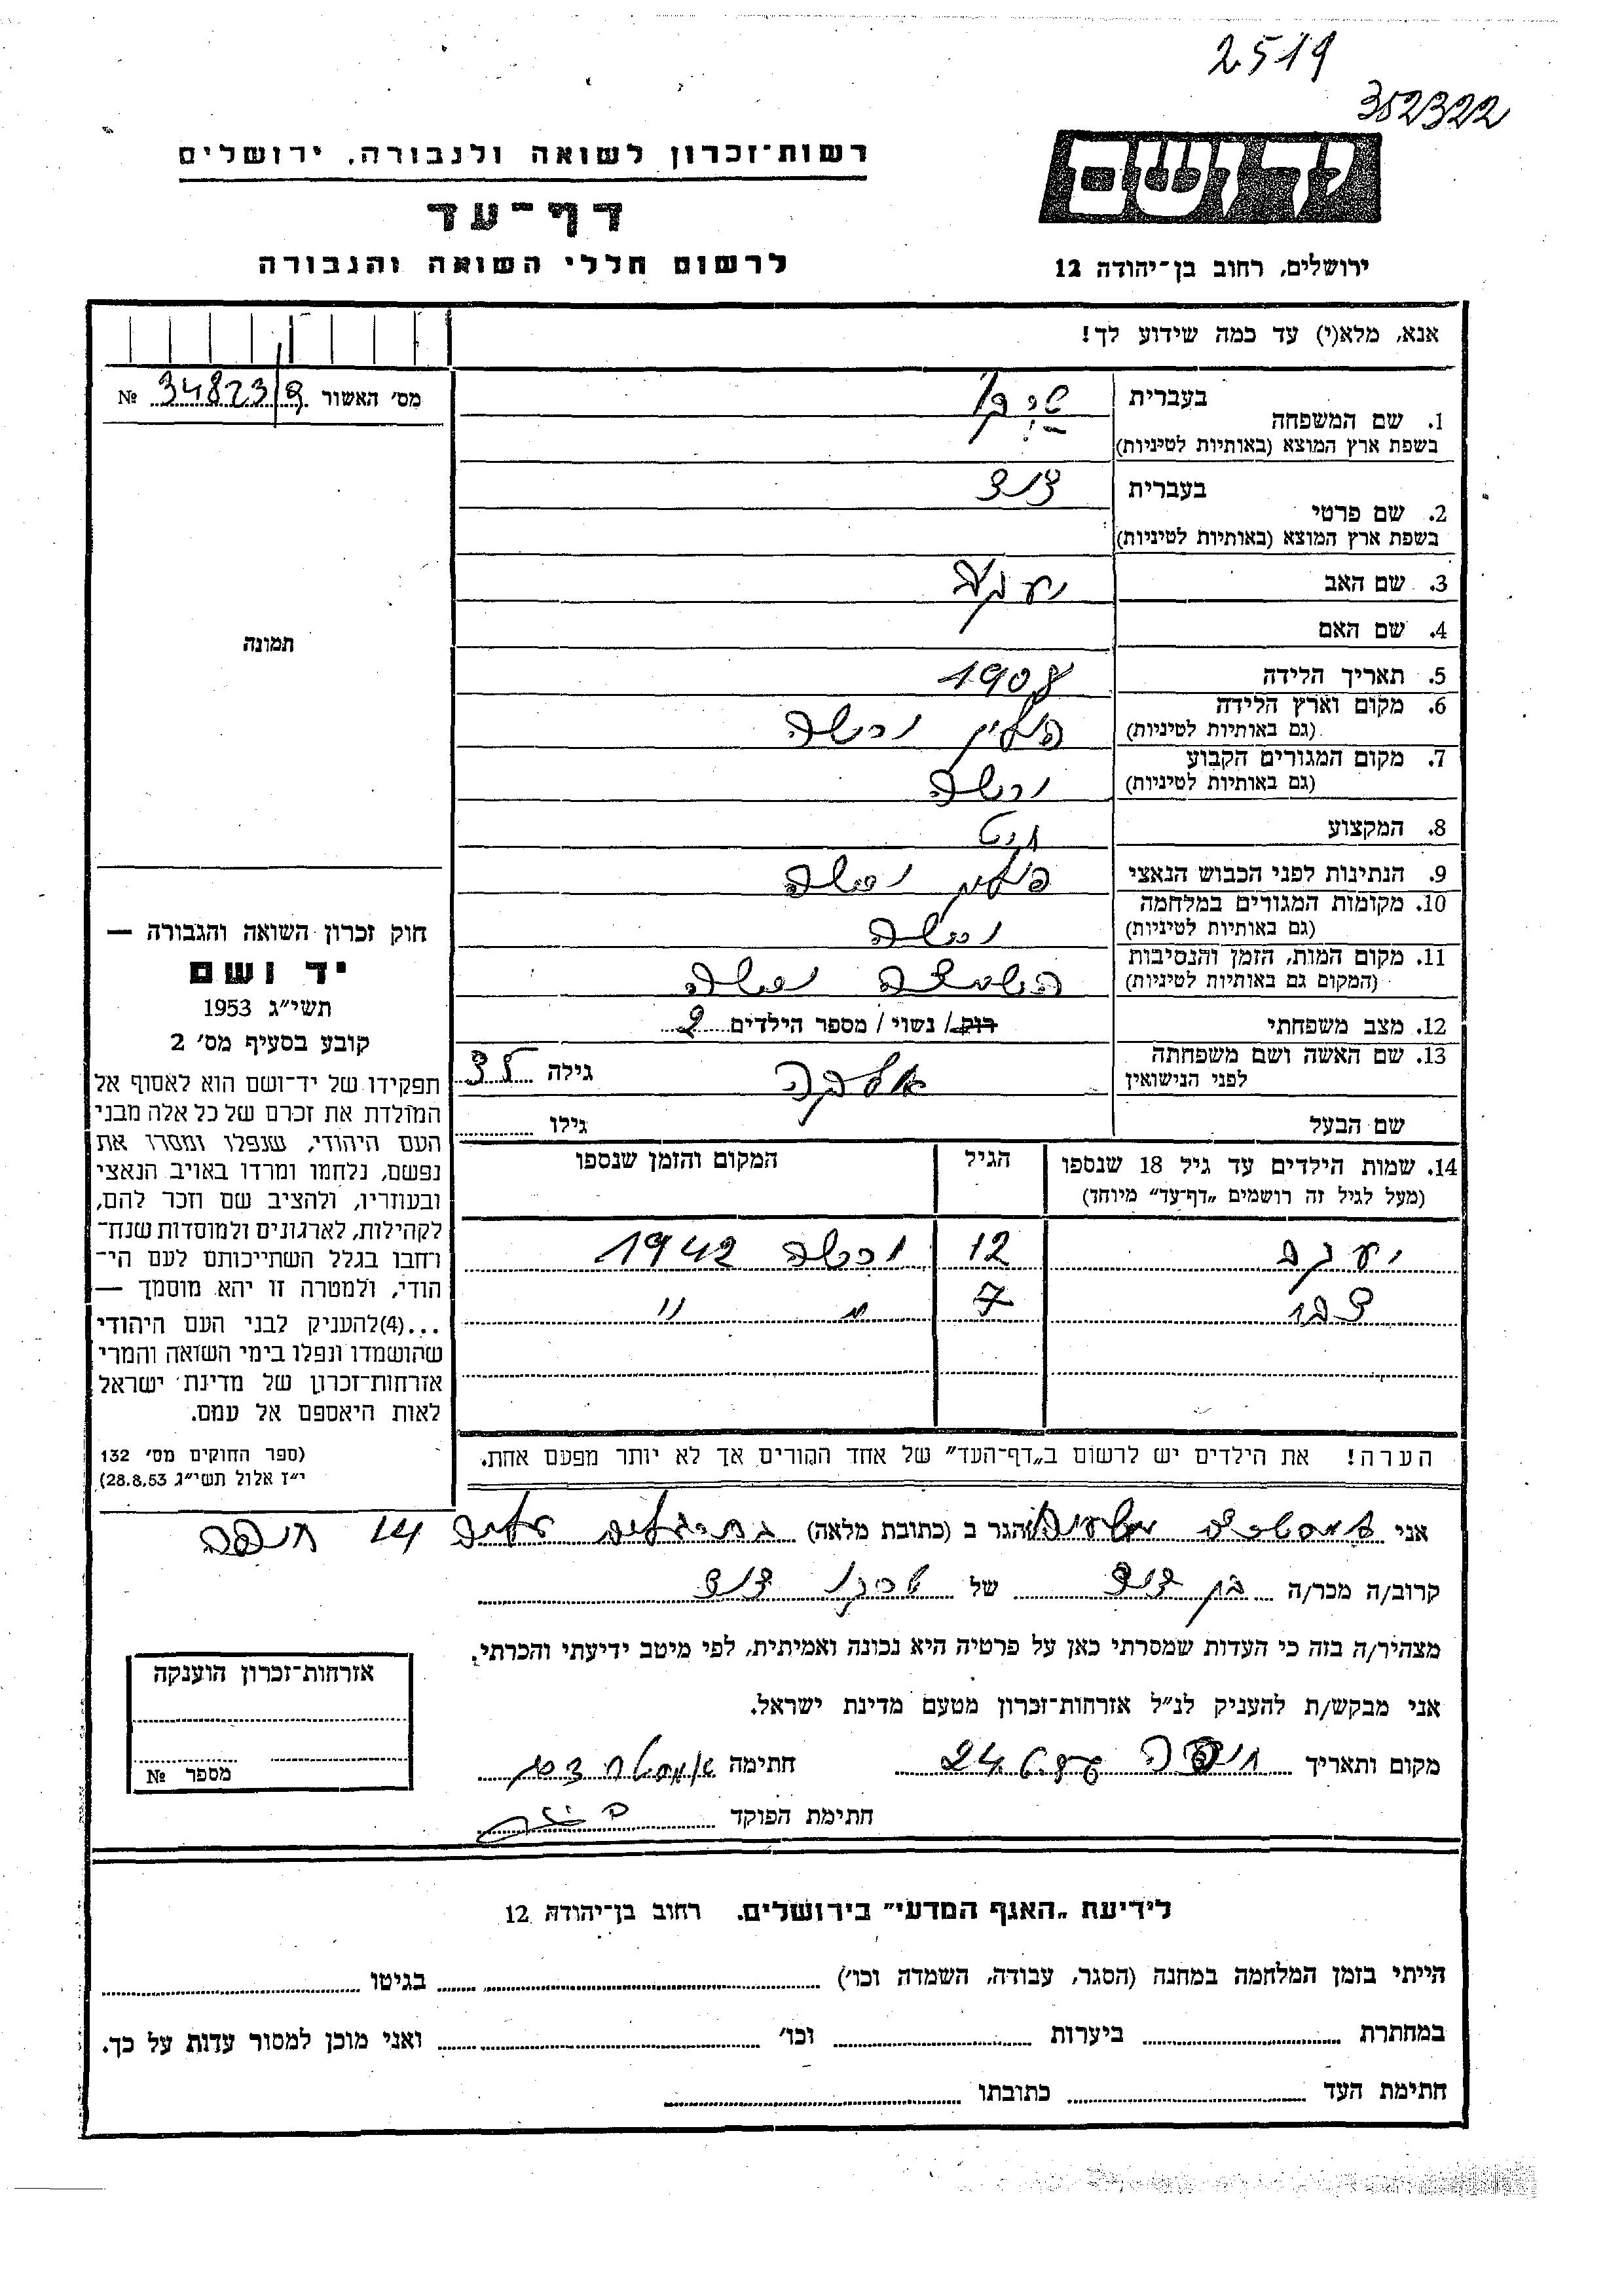 2519
352322
ידושם
רשות־זכרון לשואה ולגבורה, ירושלים
דף־עד
לרשום חללי השואה והגבורה
ירושלים, רחוב בן־יהודה 12
אנא, מלא(י) עד כמה שידוע לך!
מס׳ האשור 34823/9 №
1. שם המשפחה
בעברית
בשפת ארץ המוצא (באותיות לטיניות)
2. שם פרטי
בעברית דוד
בשפת ארץ המוצא (באותיות לטיניות)
3. שם האב יעקב
4. שם האם
5. תאריך הלידה 1908
6. מקום וארץ הלידה פולין ורשה
(גם באותיות לטיניות)
7. מקום המגורים הקבוע ורשה
(גם באותיות לטיניות)
8. המקצוע חיט
9. הנתינות לפני הכבוש הנאצי
10. מקומות המגורים במלחמה ורשה
(גם באותיות לטיניות)
11. מקום המות, הזמן והנסיבות ורשה
(המקום גם באותיות לטיניות)
12. מצב משפחתי רוק / נשוי / מספר הילדים 2
13. שם האשה ושם משפחתה
לפני הנישואין
גילה 35
שם הבעל
גילו
14. שמות הילדים עד גיל 18 שנספו
(מעל לגיל זה רושמים „דף־עד״ מיוחד)
הגיל
המקום והזמן שנספו
יעקב 12 ורשה 1942
7 " "
הערה! את הילדים יש לרשום ב„דף־העד״ של אחד ההורים אך לא יותר מפעם אחת.
תמונה
חוק זכרון השואה והגבורה —
יד ושם
תשי״ג 1953
קובע בסעיף מס׳ 2
תפקידו של יד־ושם הוא לאסוף אל
המולדת את זכרם של כל אלה מבני
העם היהודי, שנפלו ומסרו את
נפשם, נלחמו ומרדו באויב הנאצי
ובעוזריו, ולהציב שם וזכר להם,
לקהילות, לארגונים ולמוסדות שנח־
רחבו בגלל השתייכותם לעם הי־
הודי, ולמטרה זו יהא מוסמך —
...(4)להעניק לבני העם היהודי
שהושמדו ונפלו בימי השואה והמרי
אזרחות־זכרון של מדינת ישראל
לאות היאספם אל עמם.
(ספר החוקים מס׳ 132
י״ז אלול תשי״ג 28.8.53)
אני הגר ב (כתובת מלאה) 14 חיפה
קרוב/ה מכר/ה בן דוד של דוד
מצהיר/ה בזה כי העדות שמסרתי כאן על פרטיה היא נכונה ואמיתית, לפי מיטב ידיעתי והכרתי.
אני מבקש/ת להעניק לנ״ל אזרחות־זכרון מטעם מדינת ישראל.
מקום ותאריך חיפה חתימה
חתימת הפוקד
אזרחות־זכרון הוענקה
מספר №
לידיעת „האגף המדעי״ בירושלים. רחוב בן־יהודה 12
הייתי בזמן המלחמה במחנה (הסגר, עבודה, השמדה וכו׳) בגיטו
במחתרת ביערות וכו׳ ואני מוכן למסור עדות על כך.
חתימת העד כתובתו